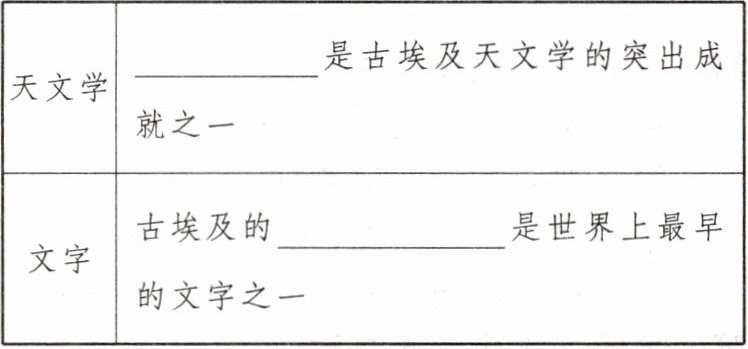 天文学
____________是古埃及天文学的突出成
就之一
文字
古埃及的_______________是世界上最早
的文字之一